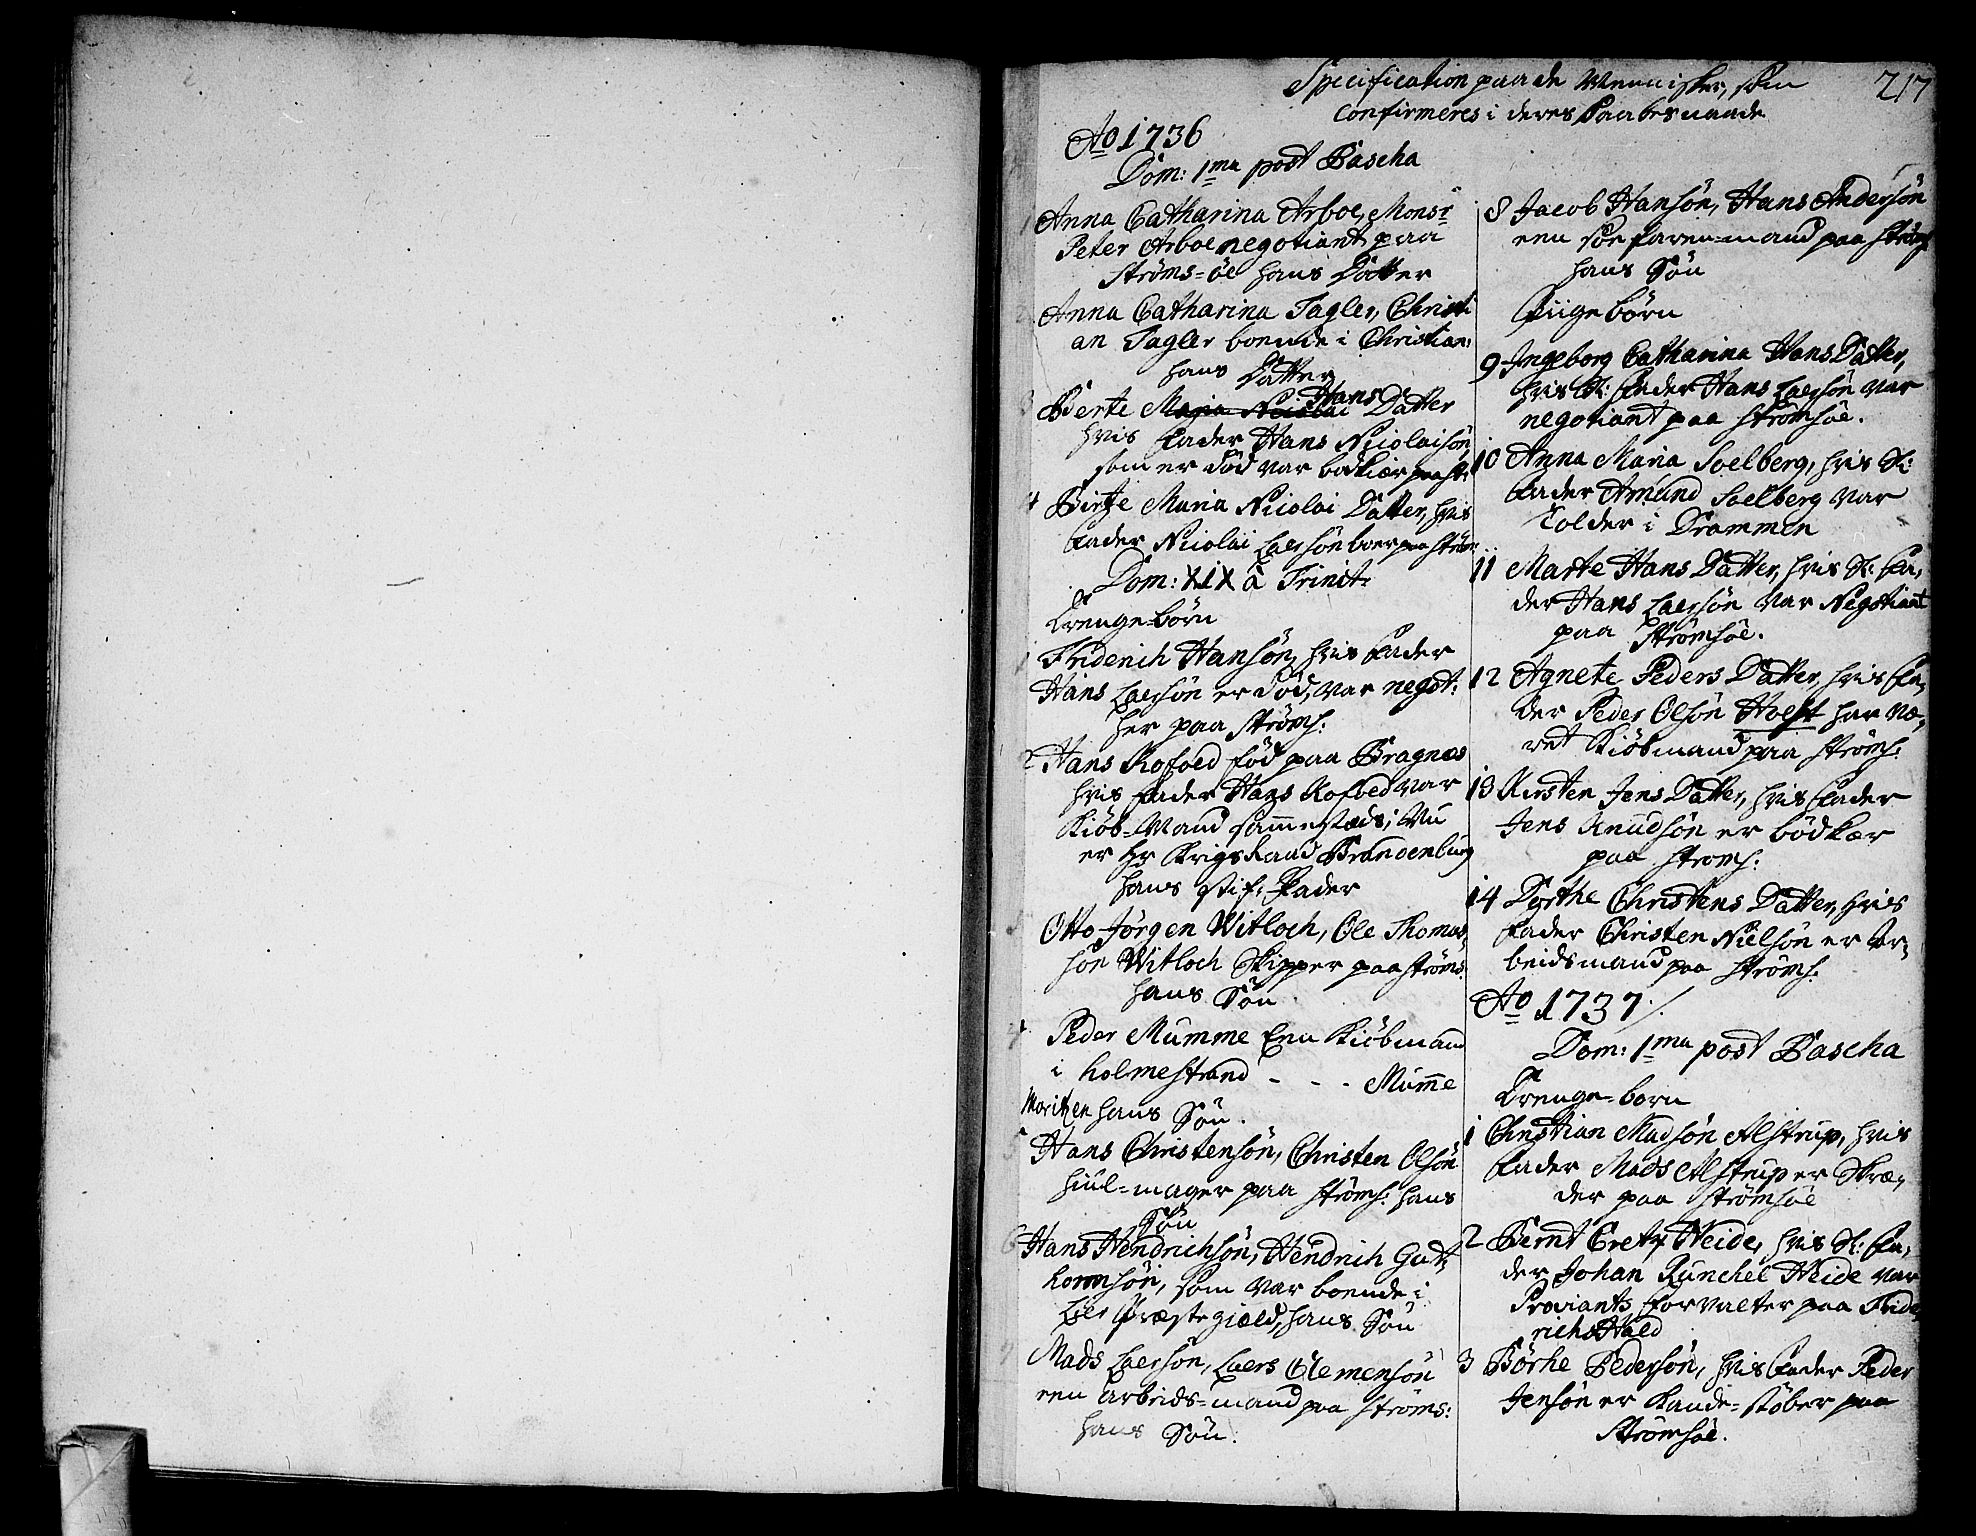 Specification paa de Mennisker, som
217
Confirmeres i deres Daabes naade
Ao 1736
Dom: 1ma post Pascha
1 Anna Catharina Arboe, Monsr
Peter Arboe negotiant paa
Strøms=öe hans Datter
2 Anna Catharina Tagler, Christi
an Tagler boende i Christian:
hans Datter
Hans
3 Berte Maria Nicolai Datter
hvis Fader Hans Nicolaisön,
som er död var bödkiær paa St:
4 Birtje Maria Nicolai Datter, hvis
Fader Nicolai Laersön boer paa Ström:
Dom: XIX à Trinit:
Drenge=börn
1 Friderich Hansön, hvis Fader
Hans Laersön er död, var negot:
her paa Ströms:
2 Hans Kofoed föd paa Bragnæs
hvis Fader Hans Kofoed var
Kiöb=Mand sammestæds; Nu
er Hr Krigsraad Brandenburg
hans stif=Fader
3 Otto Jörgen Witloch, Ole Thomas
sön Witloch Skipper paa Ströms:
hans Sön
4 Peder Mumme Een Kiöbmand
i Holmestrand - - - Mumme
Moritzen hans Sön.
5 Hans Christensön, Christen Olsön
Hiul=mager paa Ströms: hans
Sön
6 Hans Hendrichsön, Hendrich Gut,
hormsön, som var boende i
Lier Præstegield, hans Sön
7 Mads Laersön, Laers Clemensön
een Arbeids=mand paa Ströms:
hans Sön.
8 Jacob Hansön, Hans Andersön
een söefaren=mand paa Ströms
hans Sön
Piigebörn
9 Ingeborg Catharina Hans Datter,
hvis Sl: Fader Hans Laersön var
negotiant paa Strömsöe.
10 Anna Maria Soelberg, hvis Sl:
Fader Amund Soelberg var
Tolder i Drammen
11 Marte Hans Datter, hvis Sl: Fa,
der Hans Laersön var Negotiant
paa Strömsöe.
12 Agnete Peders Datter, hvis Fa,
der Peder Olsön Holst har væ,
ret Kiöbmand paa Ströms:
13 Kirsten Jens Datter, hvis Fader
Jens Knudsön er bödkær
paa Stroms:
14 Dyrthe Christens Datter, hvis
Fader Christen Nielsön er Ar,
beidsmand paa Ströms:
Ao 1737 /.
Dom: 1ma post Pascha
Drenge=born
1 Christian Madsön Alstrup, hvis
Fader Mads Alstrup er Skræ,
der paa Strömsöe
2 Bernt Cretz Heide, hvis Sl: Fa,
der Johan Runchel Heide var
Proviants forvalter paa Fride
richsHald
3 Börhe Pedersön, hvis Fader Peder
Jensön er Kande=stöber paa
Strömsöe.